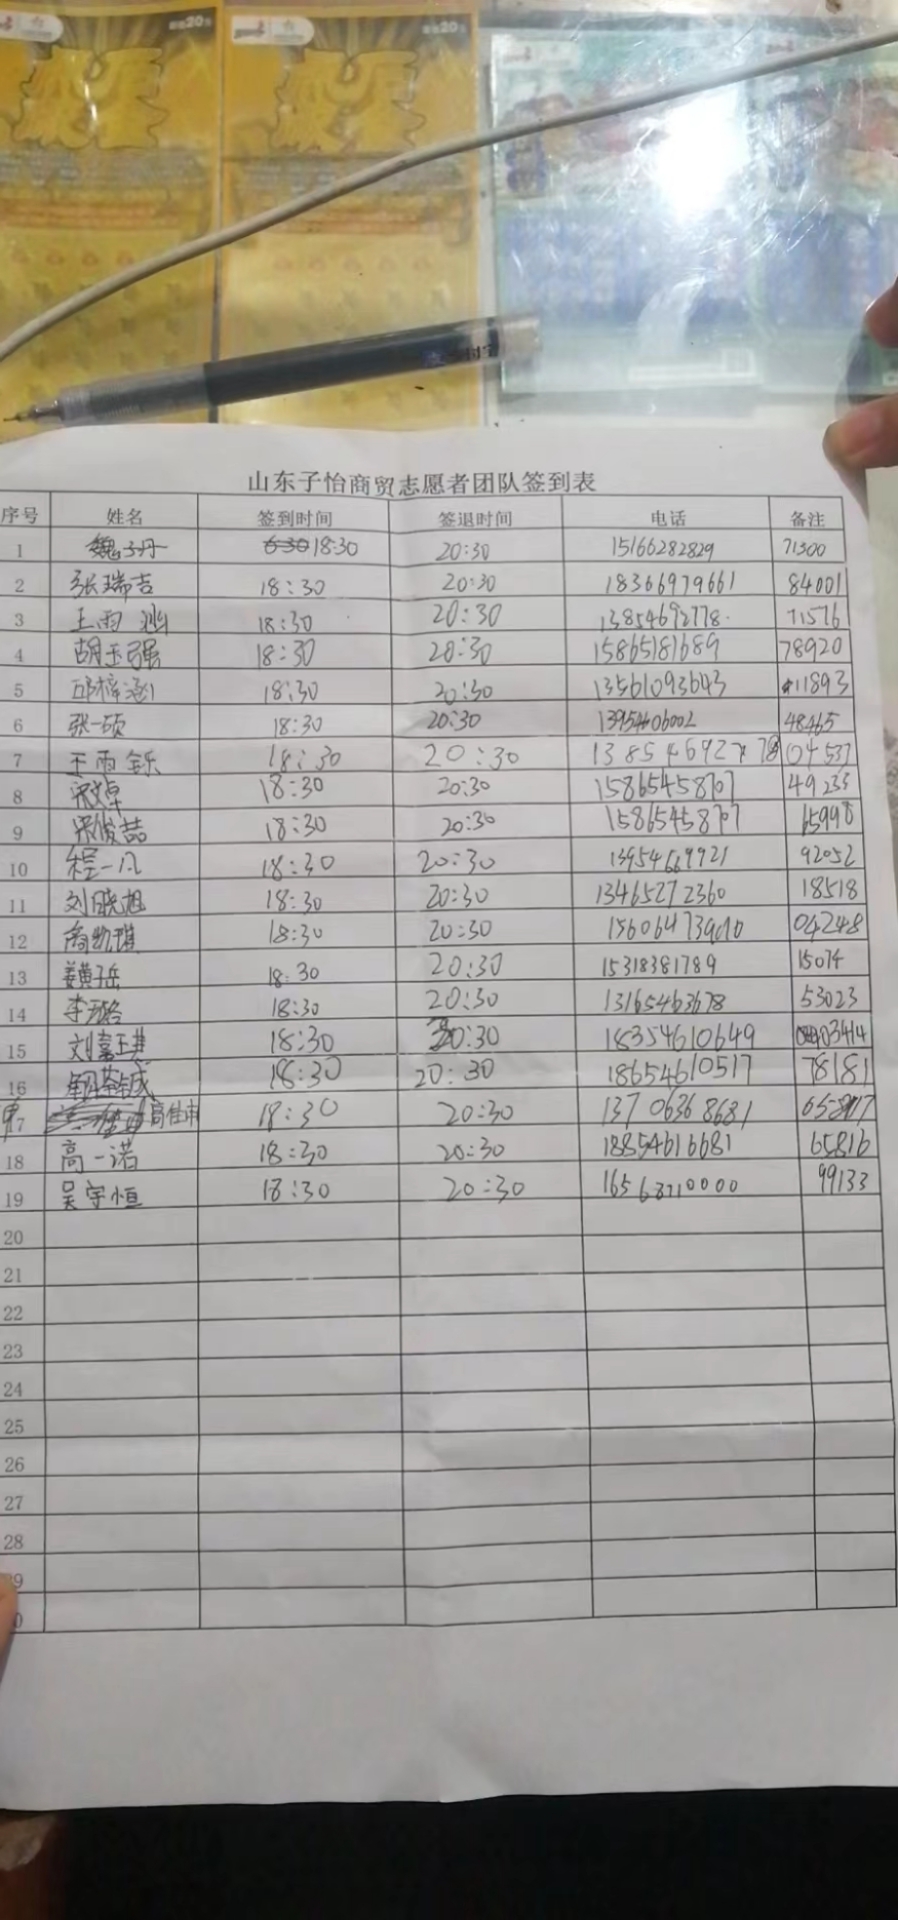 山东子怡商贸志愿者团队签到表
序号 姓名 签到时间 签退时间 电话 备注
1 魏子丹 6:30 18:30 20:30 15166282829 71300
2 张瑞吉 18:30 20:30 18366979661 84001
3 王雨 18:30 20:30 13854692778. 71576
4 胡玉强 18:30 20:30 15865181689 78920
5 邱梓涵 18:30 20:30 13561093643 11893
6 张一硕 18:30 20:30 13954606002 48465
7 王雨铄 18:30 20:30 13854692778 04537
8 宋文卓 18:30 20:30 15865458707 49233
9 宋俊喆 18:30 20:30 15865458707 65998
10 程一凡 18:30 20:30 13954669921 92052
11 刘晓旭 18:30 20:30 13465272360 18518
12 高凯琪 18:30 20:30 04248
13 姜黄子岳 18:30 20:30 15318381789 15074
14 李璐 18:30 20:30 13165463678 53023
15 刘嘉琪 18:30 20:30 18354610649 03414
16 18:30 20:30 18654610517 78181
17 高佳申 18:30 20:30 13706368681
18 高一诺 18:30 20:30 18854616681 65816
19 吴宇恒 18:30 20:30 16568710000 99133
20
21
22
23
24
25
26
27
28